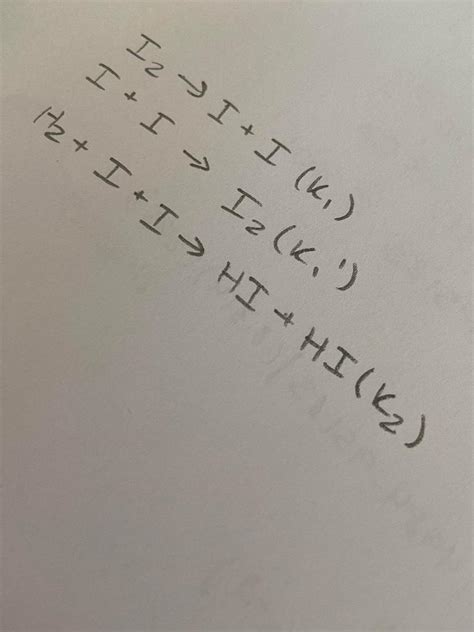 I₂ → I + I (K₁)
I + I → I₂ (K₁')
H₂ + I + I → HI + HI (K₂)